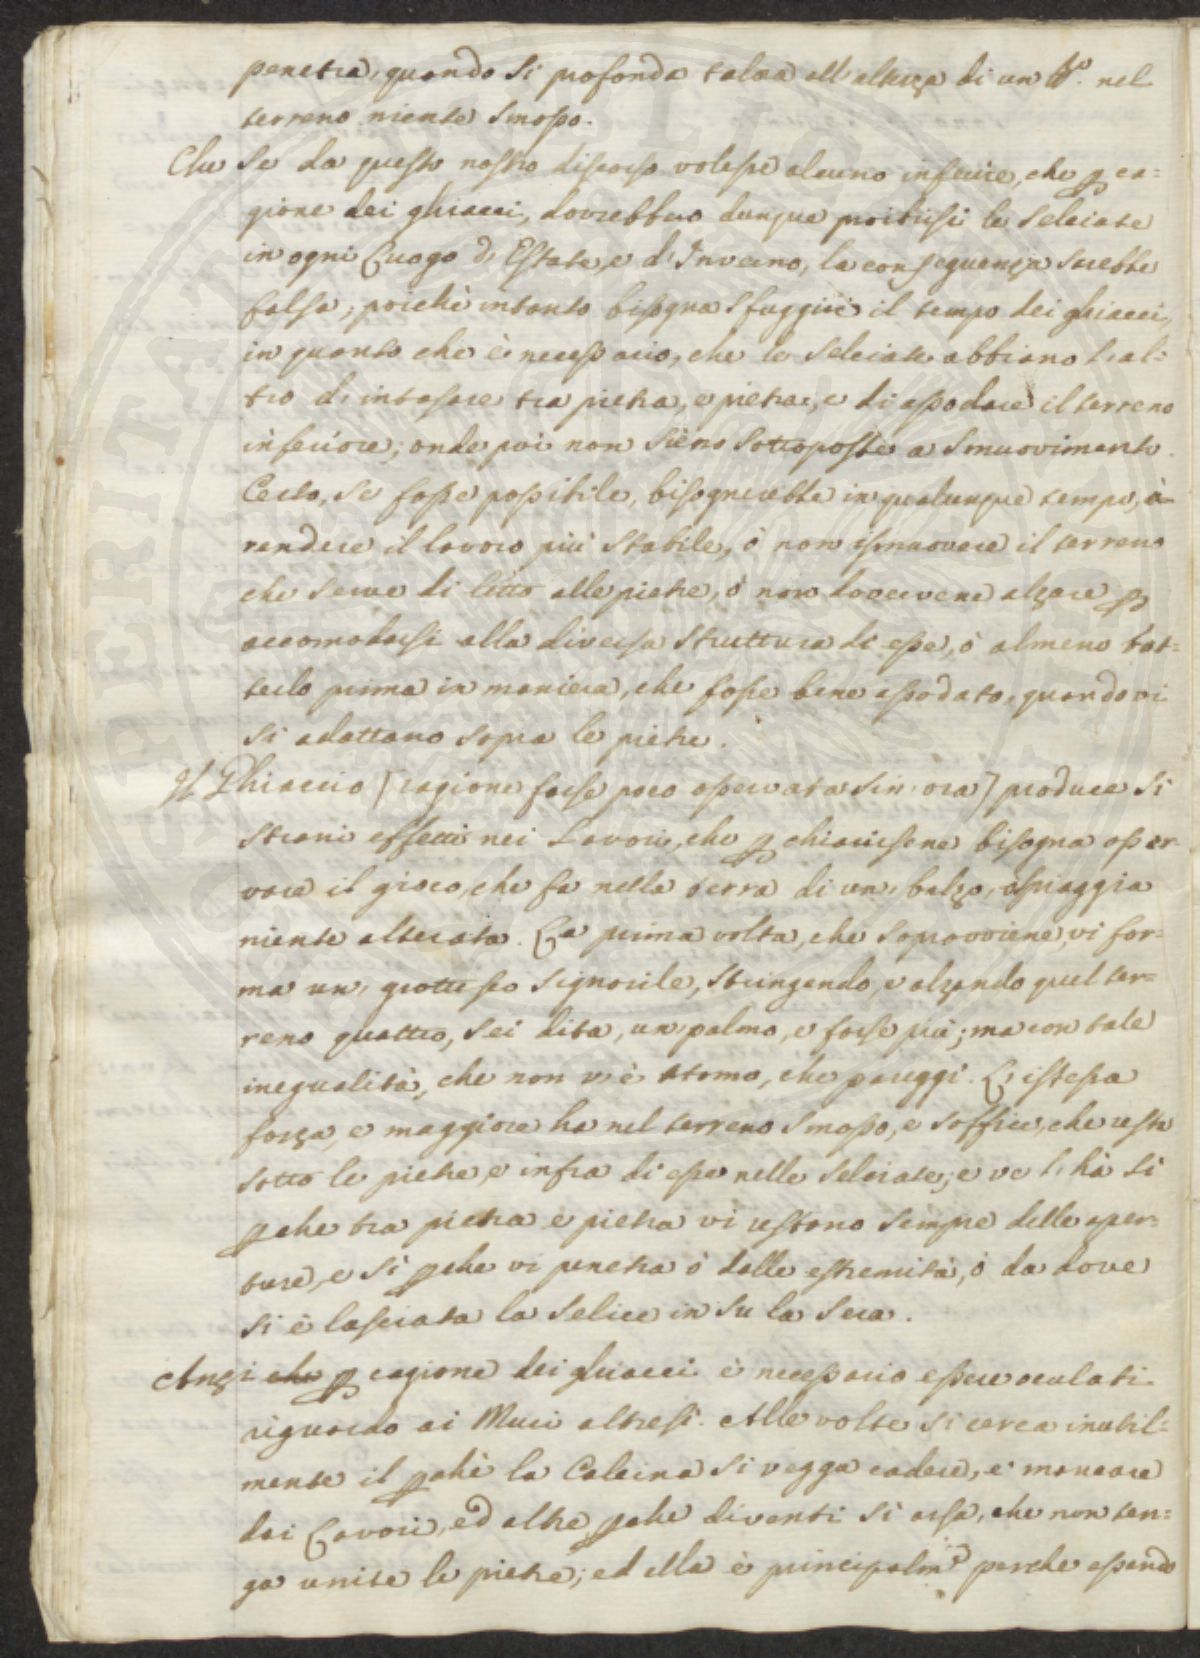 penetra, quando si profonda talora all'altezza di un B.o nel
terreno niente smosso.
Che se da questo nostro discorso volesse alcuno inferire, che p ca=
gione dei ghiacci, dovrebbero dunque proibirsi le Selciate
in ogni Luogo d'Estate, e d'Inverno, la conseguenza sarebbe
falsa; poichè intanto bisogna sfuggire il tempo dei ghiacci,
in quanto che è necessario, che le Selciate abbiano l'al=
tro di intasare tra pietra, e pietra, e di assodare il terreno
inferiore; onde poi non sieno sottoposte a smuovimento.
Certo, se fosse possibile, bisognerebbe in qualunque tempo, à
rendere il lavoro più stabile, ò non ismuovere il terreno
che serve di letto alle pietre, ò non dovervene alzare p
accomodarsi alla diversa struttura di esse, ò almeno bat=
terlo prima in maniera, che fosse bene assodato, quando vi
si adattano sopra le pietre.
Il Ghiaccio [ragione forse poco osservata sin'ora] produce si
strani effetti nei Lavori, che p chiarirsene bisogna osser=
vare il gioco, che fa nella terra di un balzo, ò spiaggia
niente alterata. La prima volta, che sopravviene, vi for=
ma un grottesco signorile, stringendo, e alzando quel ter=
reno quattro, sei dita, un palmo, e forse più; ma con tale
inegualità, che non v'è atomo, che pareggi. L'istessa
forza, e maggiore ha nel terreno smosso, e soffice, che resta
sotto le pietre, e infra di esse nelle Selciate; e ve l'hà si
pche tra pietra e pietra vi restono sempre delle aper=
ture, e si pche vi penetra ò dalle estremità, ò da dove
si è lasciata la Selice in su la sera.
Anzi che p cagione dei ghiacci è necessario essere oculati
riguardo ai Muri altresì. Alle volte si cerca inutil=
mente il pchè la Calcina si vegga cadere, e mancare
dai Lavori, ed altre pche diventi si arsa, che non ten=
ga unite le pietre; ed ella è principalm.e perche essendo